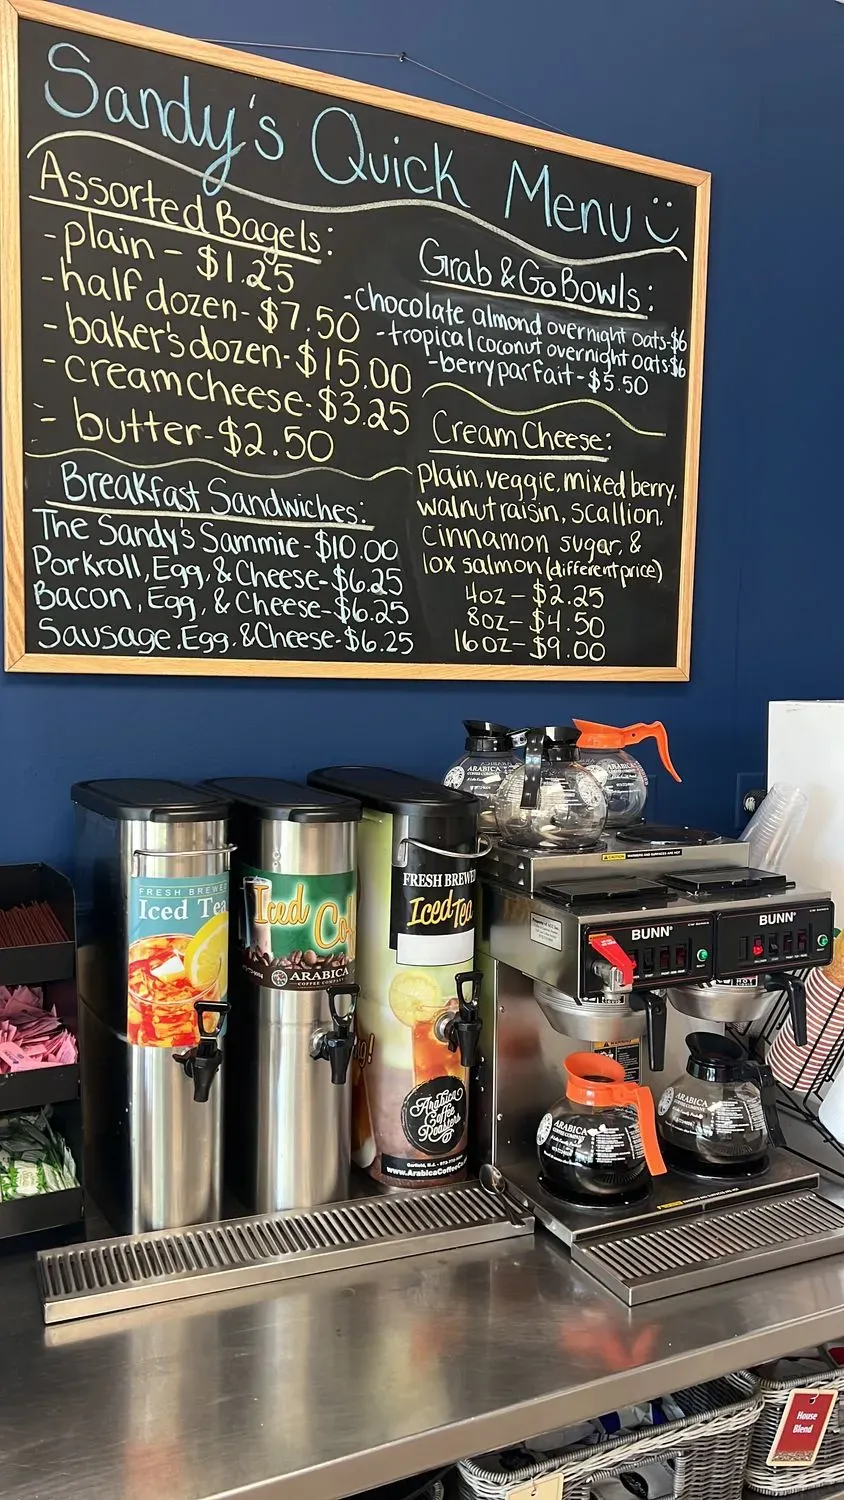 Sandy's Quick Menu
Assorted Bagels:
- plain - $1.25
- half dozen - $7.50
- baker's dozen - $15.00
- cream cheese - $3.25
- butter - $2.50
Breakfast Sandwiches:
The Sandy's Sammie - $10.00
Porkroll, Egg, & Cheese - $6.25
Bacon, Egg, & Cheese - $6.25
Sausage, Egg, & Cheese - $6.25
Grab & Go Bowls:
- chocolate almond overnight oats - $6
- tropical coconut overnight oats $6
- berry parfait - $5.50
Cream Cheese:
plain, veggie, mixed berry,
walnut raisin, scallion,
cinnamon sugar, &
lox salmon (different price)
4oz - $2.25
8oz - $4.50
16oz - $9.00
FRESH BREWED
Iced Tea
Iced Co
ARABICA
COFFEE COMPANY
FRESH BREWED
Iced Tea
Arabica
Coffee
Roasters
www.ArabicaCoffeeCo
ARABICA
ARABICA
BUNN
BUNN
ARABICA
COFFEE COMPANY
ARABICA
COFFEE COMPANY
House
Blend